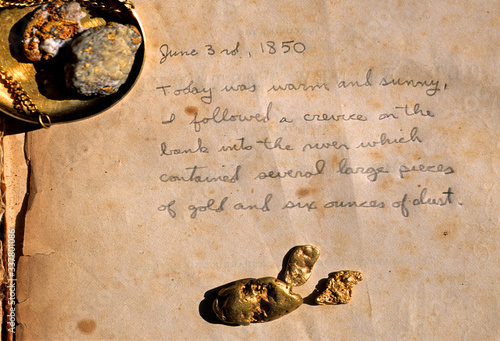 June 3rd, 1850
Today was warm and sunny,
I followed a crevice on the
bank into the river which
contained several large pieces
of gold and six ounces of dust.
Adobe Stock | #337801086